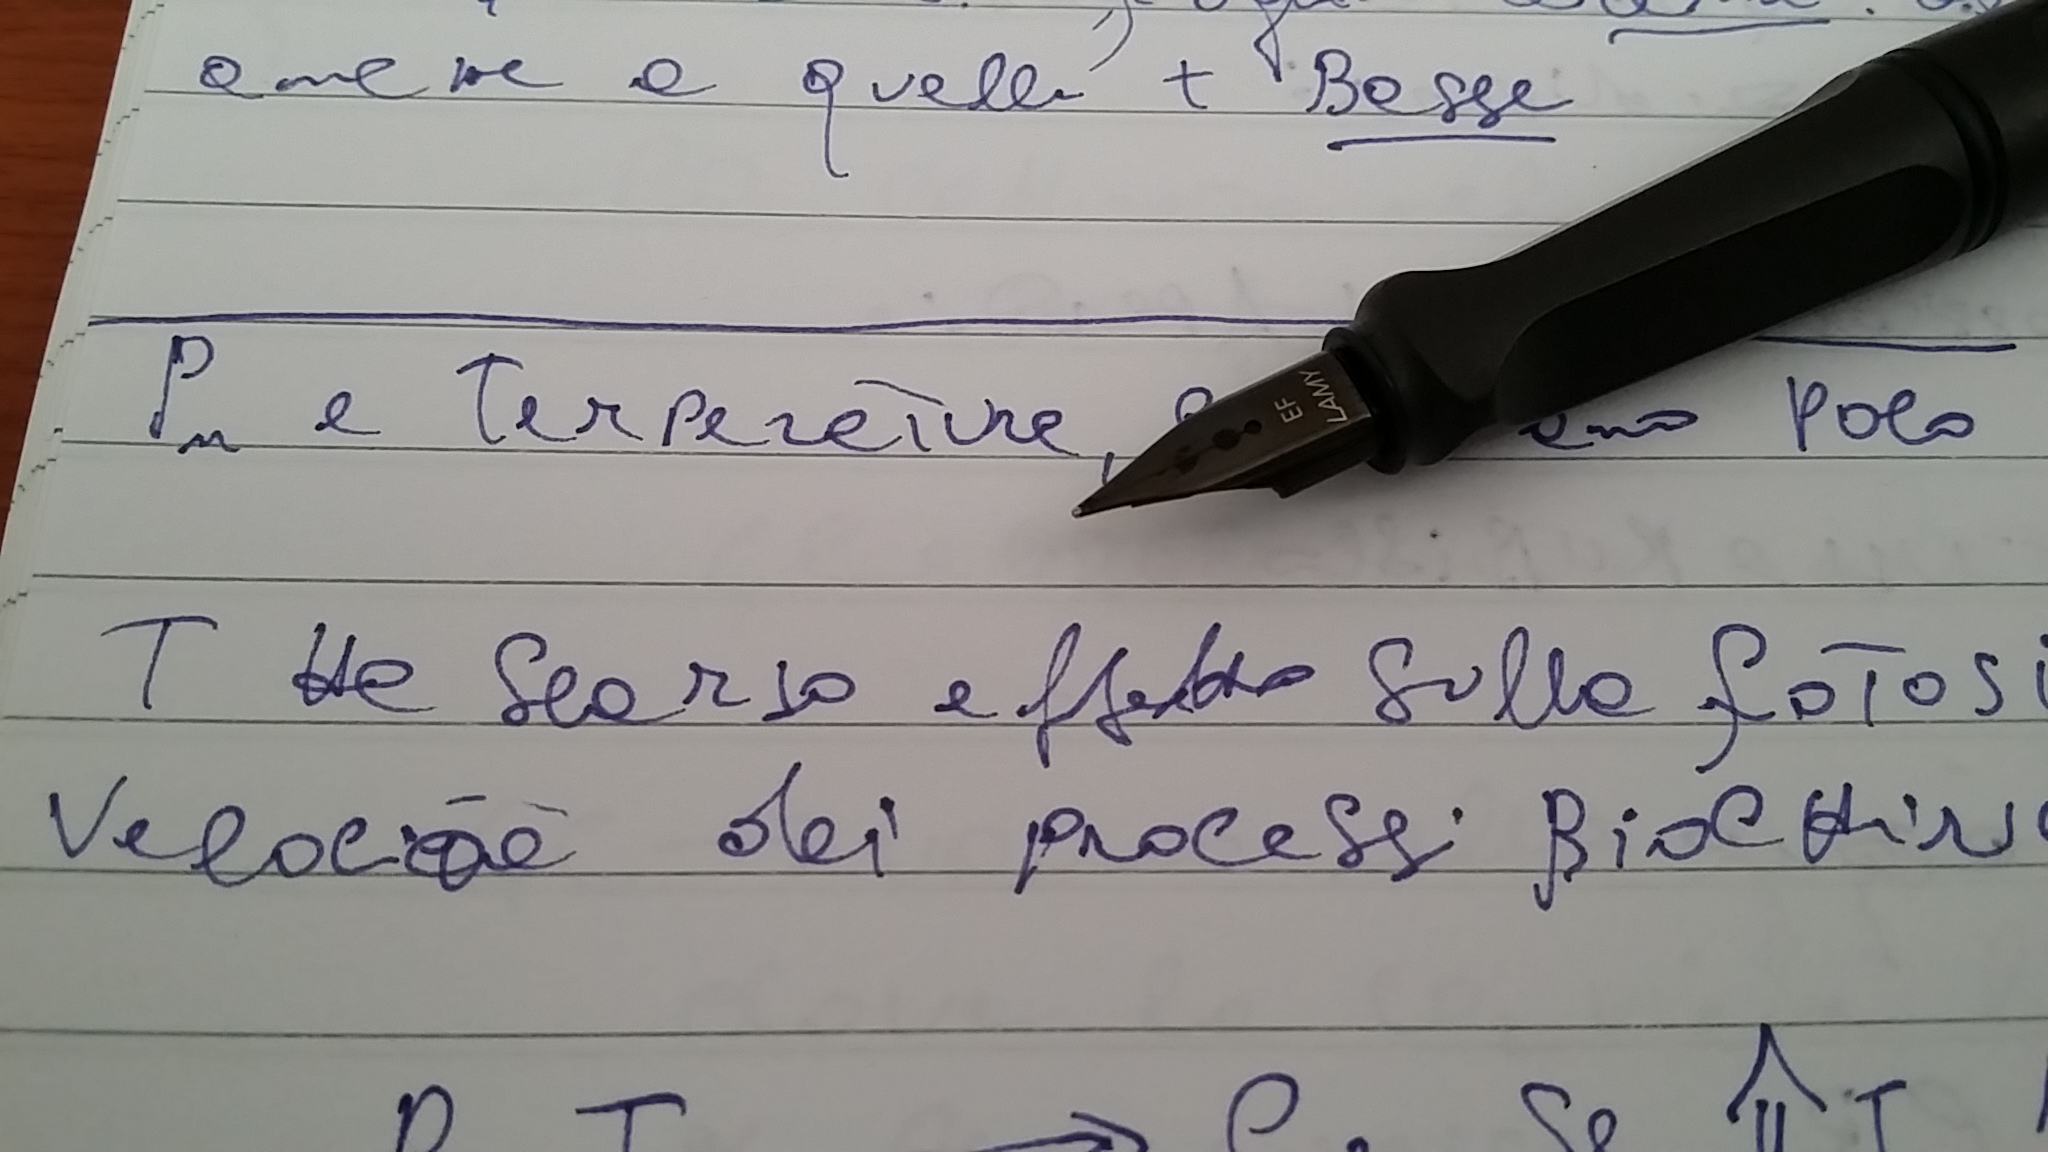 anche a quelle + Basse
Pn e Temperature, poco
EF
LAMY
T ha scarso effetto sulla fotosi
Velocità dei processi Biochimic
P T → Se ⇑ T